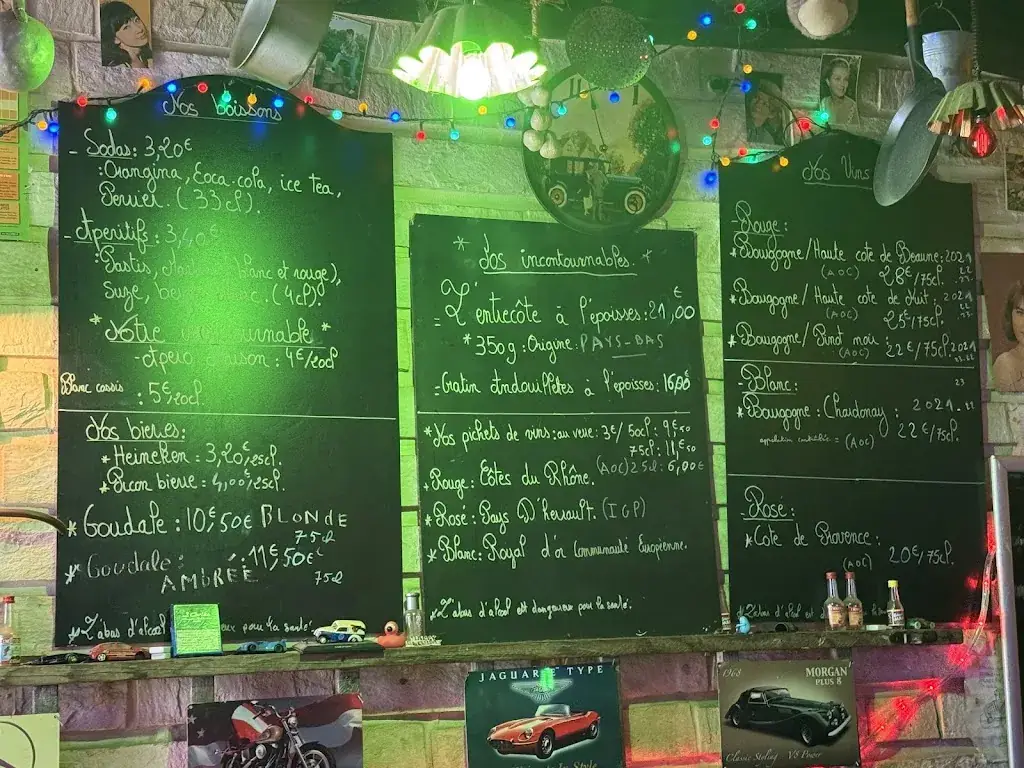 Nos boissons
- Sodas : 3,20€
: Orangina, Coca-cola, ice tea,
Perrier. (33cl).
- Aperitifs : 3,40€
Pastis, blanc et rouge),
Suze, (4cl).
* Notre *
- Apero maison : 4€/20cl
Blanc cassis : 5€/20cl.
Nos bieres :
* Heineken : 3,20/25cl.
* Picon bierre : 4,00/25cl.
* Goudale : 10€,50€ BLONDE
75cl
* Goudale : 11€,50€
AMBRÉE 75cl
* L'abus d'alcool pour la santé.
* Nos incontournables. *
- L'entrecôte à l'époisses : 21,00€
* 350g : Origine : PAYS-BAS
- Gratin Andouillettes à l'époisses : 16,00€
* Nos pichets de vins : au verre : 3€/ 50cl : 9€50
75cl : 11€,50
(AOC) 25cl : 6,00€
* Rouge : Côtes du Rhône.
* Rosé : Pays D'Herault. (IGP)
* Blanc : Royal d'or Communauté Européenne.
* L'abus d'alcool est dangereux pour la santé.
Nos Vins
- Rouge :
* Bourgogne/Haute cote de Beaune : 2021
(AOC) 28€/75cl. 22
* Bourgogne/Haute cote de Nuit : 2021
(AOC) 25€/75cl. 22
* Bourgogne/Pinot noir : 2021
(AOC) 22€/75cl.
- Blanc : 23
* Bourgogne : Chardonay : 2021.22
appellation contrôlée = (AOC) 22€/75cl.
- Rosé :
* Cote de Provence :
(AOC) 20€/75cl.
* L'abus d'alcool est
JAGUAR E TYPE
In Style
1968
MORGAN
PLUS 8
Classic Styling V8 Power